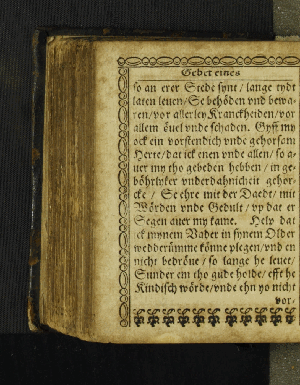 Gebet eines
so an erer Stede synt / lange tydt
laten leuen / Se behöden vnd bewa-
ren / vor allerley Kranckheiden / vor
allem öuel vnde schaden. Gyff my
ock ein vorstendich vnde gehorsam
Herte / dat ick enen vnde allen / so a-
uer my tho gebeden hebben / in ge-
böhrlyker vnderdahnicheit gehor-
cke / Se ehre mit der Daedt / mit
Wörden vnde Gedult / vp dat er
Segen auer my kame. Help dat
ick mynem Vader in synem Older
wedderümme könne plegen / vnd en
nicht bedröue / so lange he leuet /
Sunder em tho gude holde / efft he
Kindisch wörde / vnde ehn yo nicht
vor-